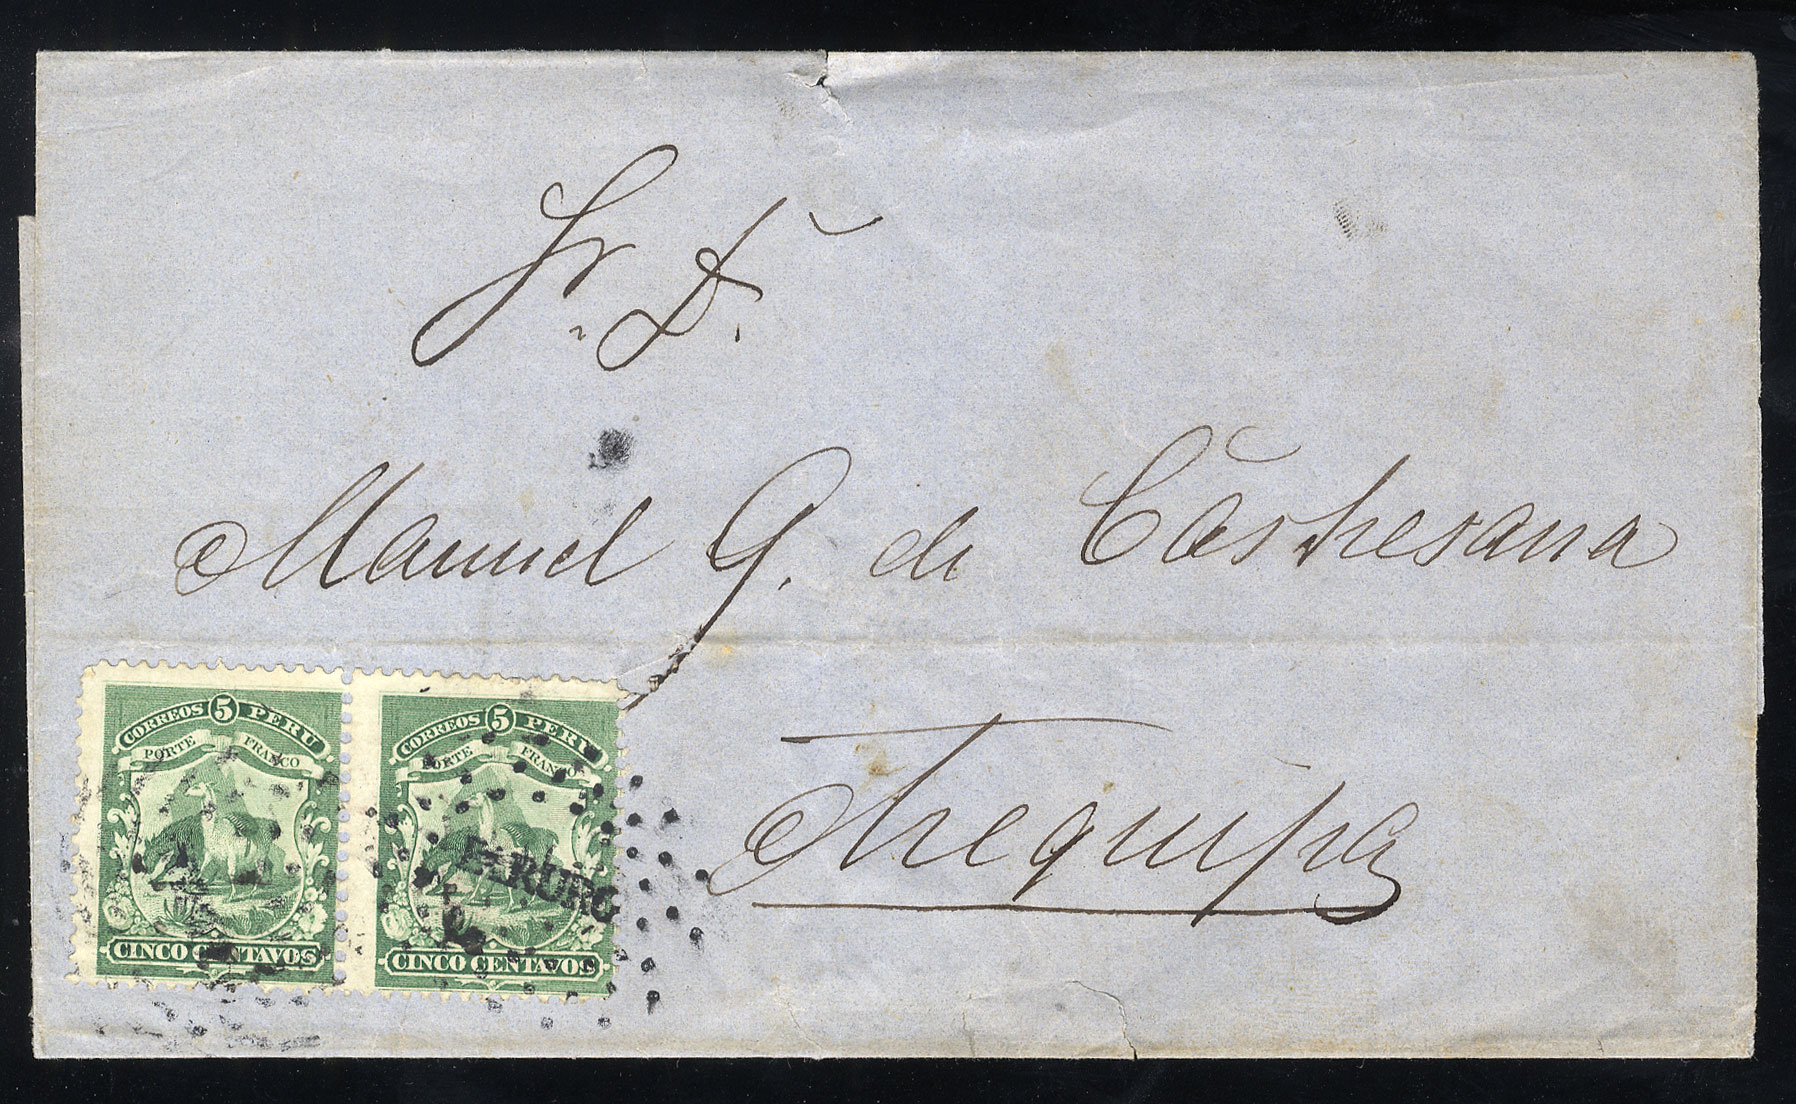 Sr. D.
Manuel G. de Castresana
Arequipa
CORREOS 5 PERU
PORTE FRANCO
CINCO CENTAVOS
CORREOS 5 PERU
PORTE FRANCO
CINCO CENTAVOS